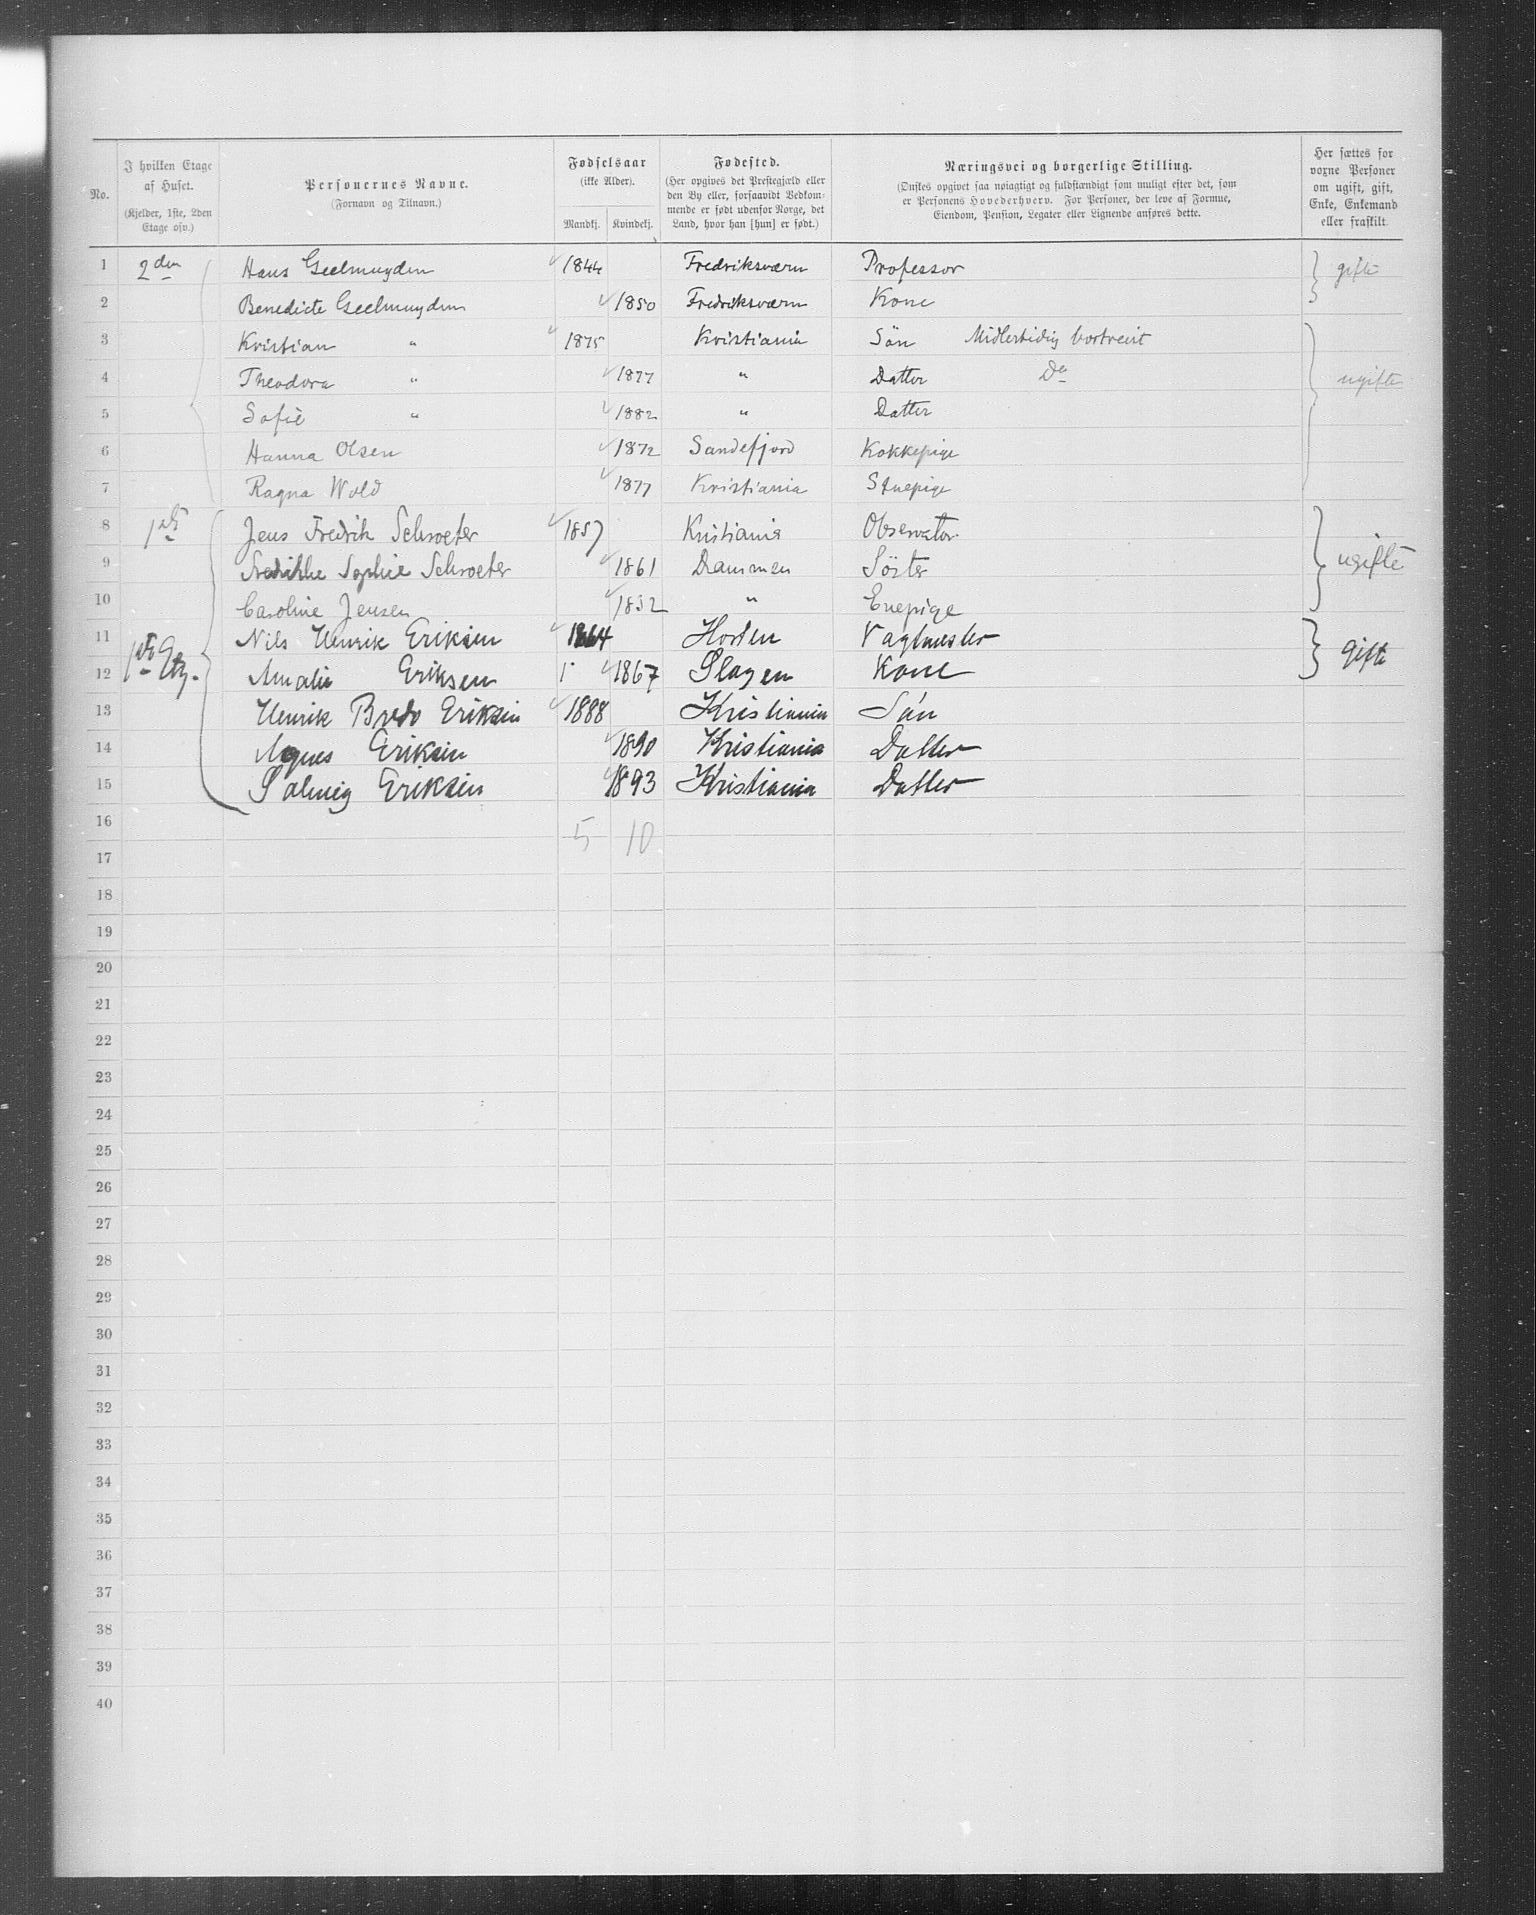 No.
I hvilken Etage af Huset. (Kjelder, 1ste, 2den Etage osv.)
Personernes Navne. (Fornavn og Tilnavn.)
Fødselsaar (ikke Alder). Mandkj. Kvindekj.
Fødested. (Her opgives det Prestegjæld eller den By eller, forsaavidt Vedkommende er født udenfor Norge, det Land, hvor han [hun] er født.)
Næringsvei og borgerlige Stilling. (Ønskes opgivet saa nøiagtigt og fuldstændigt som muligt efter det, som er Personens Hovederhverv. For Personer, der leve af Formue, Eiendom, Pension, Legater eller Lignende anføres dette.)
Her sættes for voxne Personer om ugift, gift, Enke, Enkemand eller fraskilt.
1 2den Hans Geelmuyden 1844 Fredriksværn Professor gifte
2 Benedicte Geelmuyden 1850 Fredriksværn Kone
3 Kristian " 1875 Kristiania Sön Midlertidig bortreist
4 Theodora " 1877 " Datter Do ugifte
5 Sofie " 1882 " Datter
6 Hanna Olsen 1872 Sandefjord Kokkepige
7 Ragna Wold 1877 Kristiania Stuepige
8 1ste Jens Fredrik Schroeter 1857 Kristiania Observator
9 Fredrikke Sophie Schroeter 1861 Drammen Söster ugifte
10 Caroline Jensen " Enepige
11 1ste Etg. Nils Henrik Eriksen 1864 Horten Vagtmester gifte
12 Amalie Eriksen 1867 Slagen Kone
13 Henrik Bredo Eriksen 1888 Kristiania Sön
14 Agnes Eriksen 1890 Kristiania Datter
15 Solveig Eriksen 1893 Kristiania Datter
16 5 10
17
18
19
20
21
22
23
24
25
26
27
28
29
30
31
32
33
34
35
36
37
38
39
40